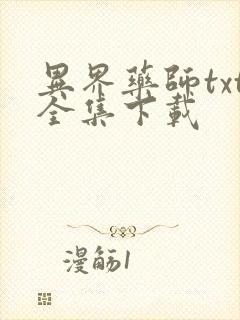 異界藥師txt
全集下載
漫觞1